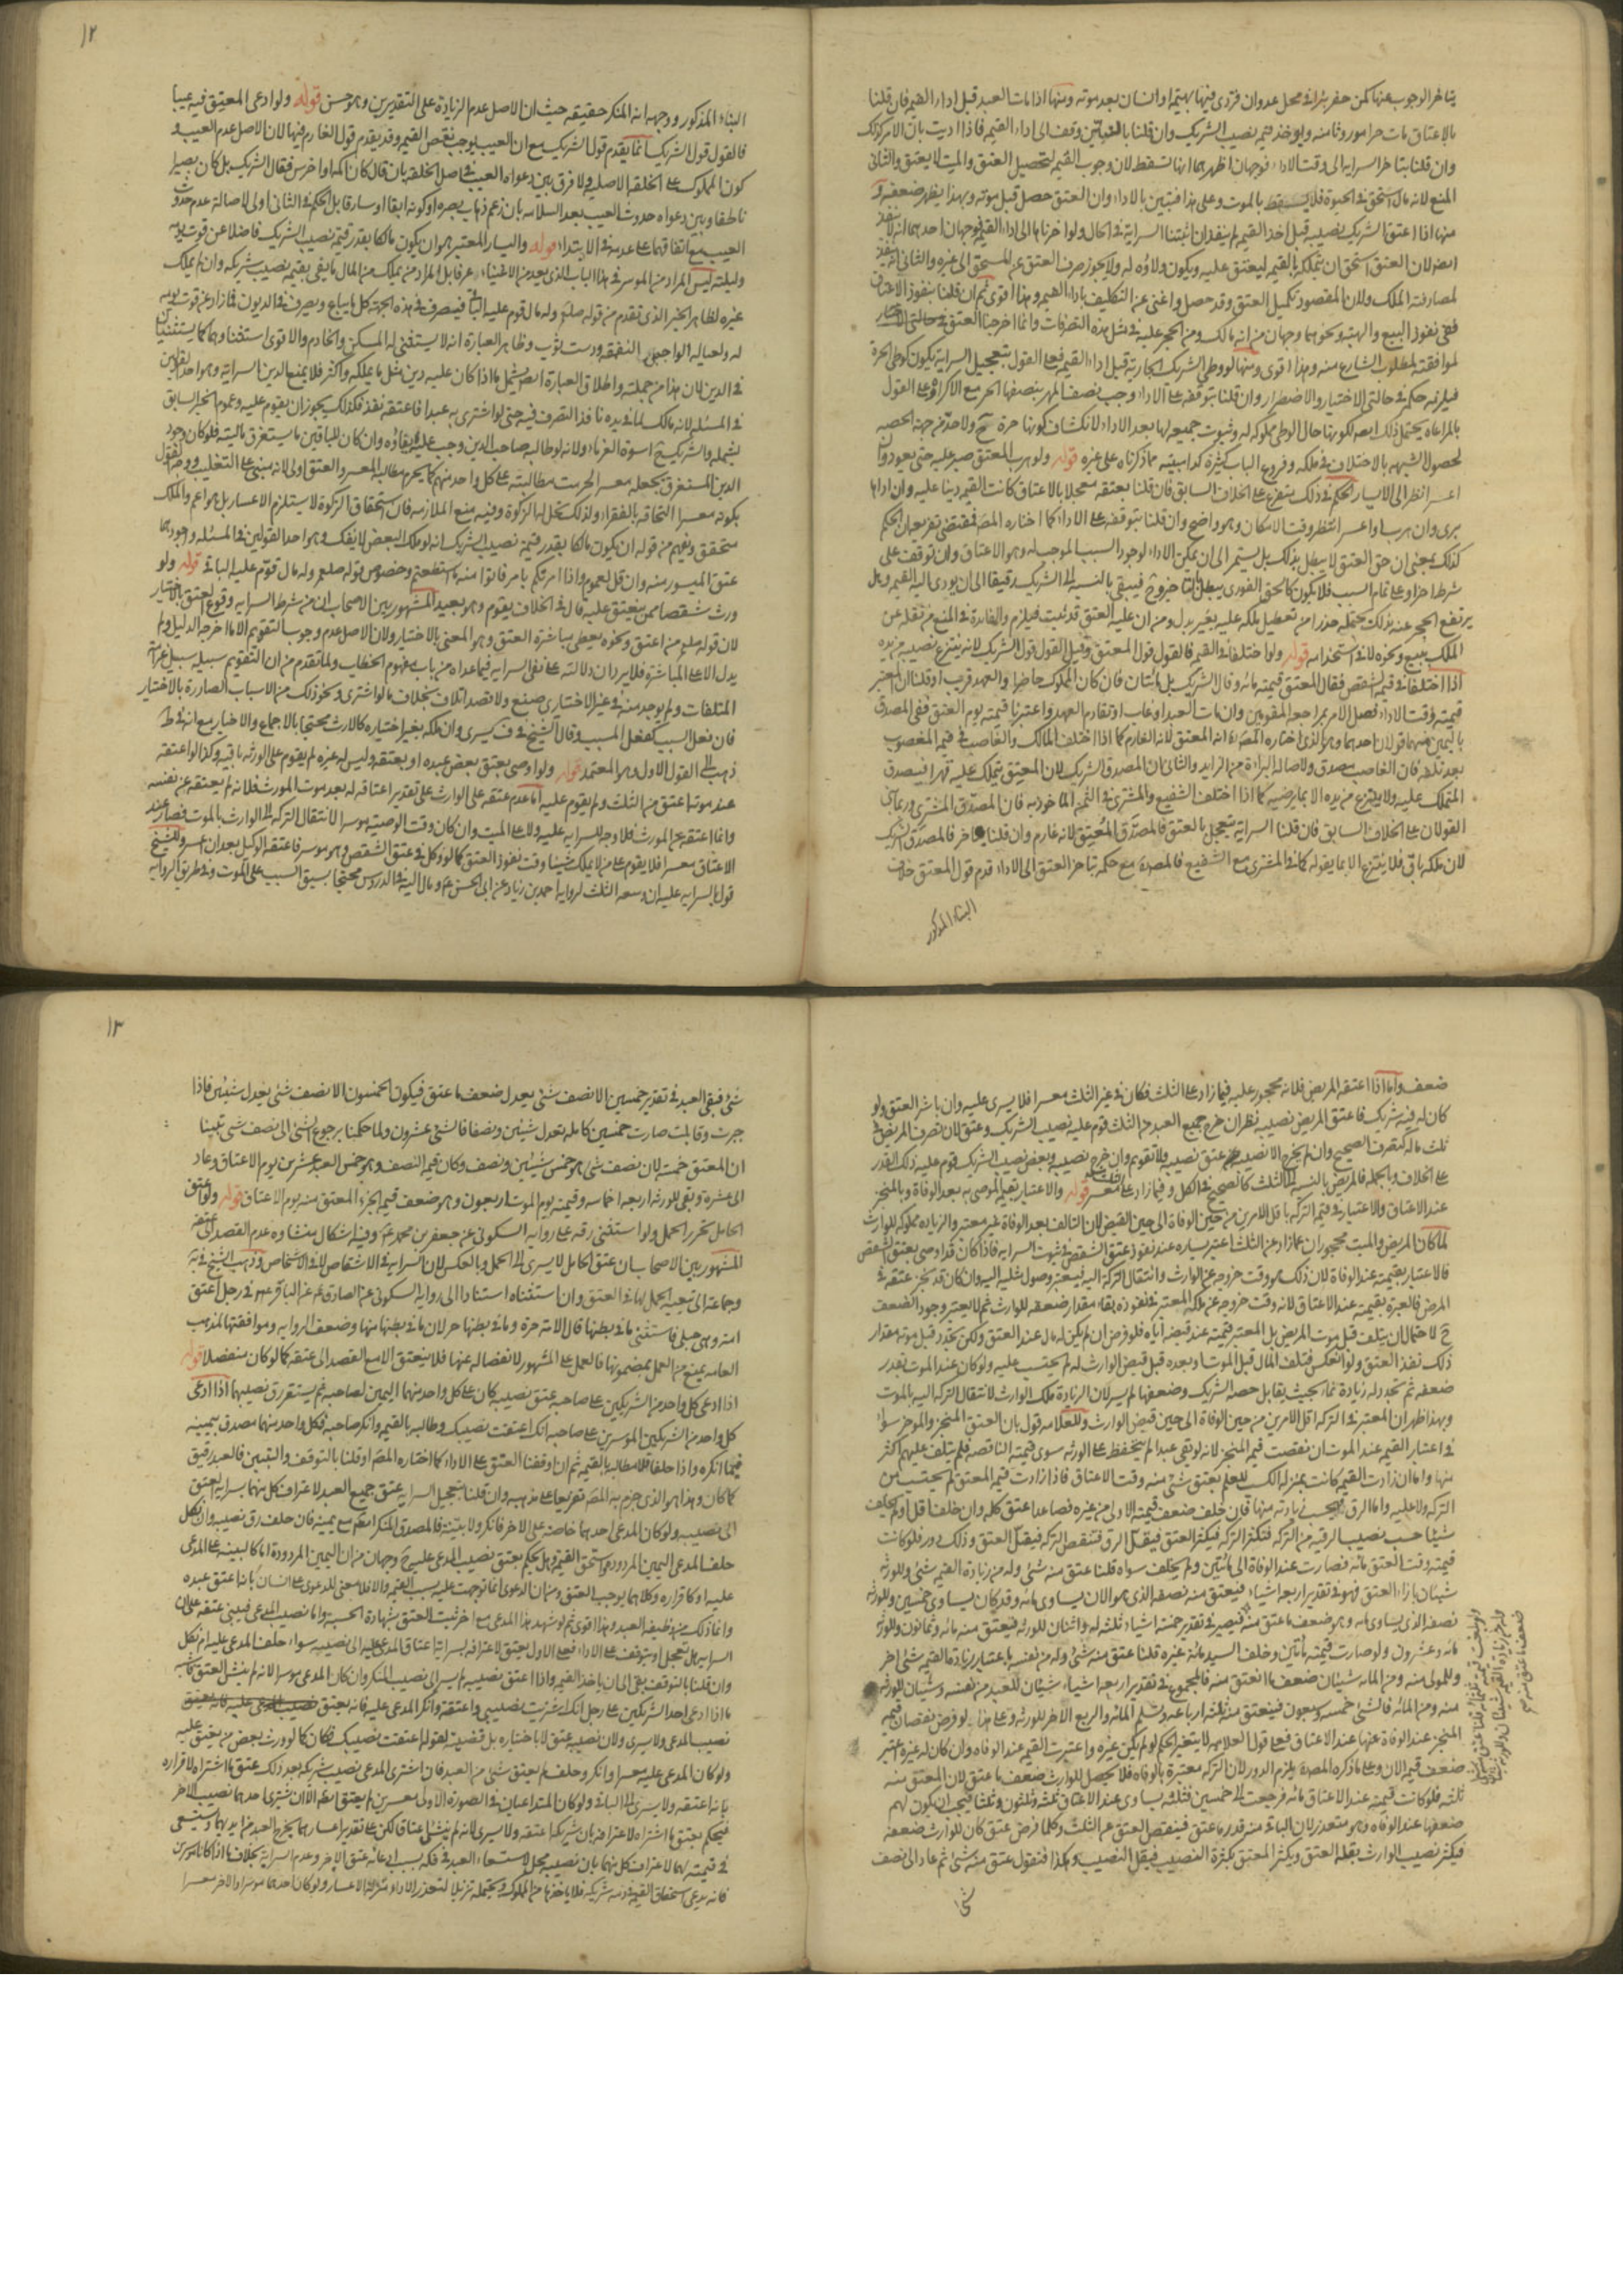 يتاخر الوجوب عنها كمن حفر بئرا في محل عدوان فتردى فيها بهيمة او انسان بعد موته ومنها اذا مات العبد قبل اداء القيمة فان قلنا
بالاعتاق مات حرا موروثا منه ويؤخذ قيمة نصيب الشريك وان قلنا بالتبين وقف الى اداء القيمة فاذا اديت بان الامر كذلك
وان قلنا بتاخر السراية الى وقت الاداء فوجهان اظهرهما انها تسقط لان وجوب القيمة لتحصيل العتق والميت لا يعتق والثاني
المنع لانه مال استحق في الحيوة فلا يسقط بالموت وعلى هذا فيتبين بالاداء ان العتق حصل قبل موته وبهذا يظهر ضعفه و
منها اذا اعتق الشريك نصيبه قبل اخذ القيمة لم ينفذ ان اثبتنا السراية في الحال ولو اخرناها الى اداء القيمة فوجهان احدهما انه لا ينفذ
ايضا لان العتق استحق ان يتملكه بالقيمة ليعتق عليه ويكون ولاؤه له ولا يجوز صرف العتق عن المستحق الى غيره والثاني انه ينفذ
لمصادفته الملك ولان المقصود تكميل العتق وقد حصل واغنى عن التكليف باداء القيمة وهذا اقوى ثم ان قلنا بنفوذ الاعتاق
ففي نفوذ البيع والهبة ونحوهما وجهان من انه مالك ومن الحجر عليه في مثل هذه التصرفات وانما اخرجنا العتق
لموافقته لمطلوب الشارع منه وهذا اقوى ومنها لو وطي الشريك الجارية قبل اداء القيمة فعلى القول بتعجيل السراية يكون كوطي الحرة
فيلزمه حكمه في حالتي الاختيار والاضطرار وان قلنا بتوقفه على الاداء وجب نصف المهر بنصفها الحر مع الاكراه وعلى القول
بالمراعاة يحتمل ذلك ايضا لكونها حال الوطي مملوكة له وثبوت جميعه لها بعد الاداء لانكشاف كونها حرة ح ولا حد من جهة الحصة
لحصول الشبهة بالاختلاف في ملكه وفروع الباب كثيرة كما نبينه مما ذكرناه على غيره قوله ولو هرب المعتق صبر عليه حتى يعود وان
اعسر انظر الى الايسار الحكم في ذلك يتفرع على الخلاف السابق فان قلنا بعتقه معجلا بالاعتاق كانت القيمة دينا عليه وان
هرب او اعسر انتظر وقت الامكان وهو واضح وان قلنا بتوقفه على الاداء كما اختاره المص فمقتضى تفريعه ان الحكم
كذلك بمعنى ان حق العتق لا يبطل بذلك بل يستمر الى ان يمكن الاداء لوجود السبب الموجب له وهو الاعتاق وان توقف على
شرط اخر او على تمام السبب فلا يكون كالحق الفوري يبطل بالتاخير وح فيبقى بالنسبة الى الشريك رقيقا الى ان يؤدى اليه القيمة وهل
يرتفع الحجر عنه بذلك يحتمله حذرا من تعطيل ملكه عليه بغير بدل ومن ان علقة العتق قد ثبت فيلزم والفائدة في المنع من نقله عن
الملك ببيع ونحوه لا في استخدامه قوله ولو اختلفا في القيمة فالقول قول المعتق وقيل القول قول الشريك لانه ينتزع نصيبه من يده
اذا اختلفا في قيمة الشقص فقال المعتق قيمته مائة وقال الشريك بل مائتان فان كان المملوك حاضرا والعهد قريب او قلنا ان المعتبر
قيمته وقت الاداء فصل الامر بمراجعة المقومين وان مات العبد او غاب او تقادم العهد واعتبرنا قيمته يوم العتق ففي المصدق
باليمين منهما قولان احدهما وهو الذي اختاره المص انه المعتق لانه الغارم كما اذا اختلف المالك والغاصب في قيمة المغصوب
بعد تلفه فان الغاصب مصدق ولاصالة البراءة من الزايد والثاني ان المصدق الشريك لان المعتق يتملك عليه قهرا فيصدق
المتملك عليه ولا ينتزع من يده الا بما يرضيه كما اذا اختلف الشفيع والمشتري في الثمن الماخوذ به فان المصدق المشتري وربما بني
القولان على الخلاف السابق فان قلنا السراية بتعجيل بالعتق فالمصدق المعتق لانه غارم وان قلنا يتاخر فالمصدق الشريك
لان ملكه باق فلا ينتزع الا بما يقوله كما في المشتري مع الشفيع فالمص مع حكمه بتاخر العتق الى الاداء قدم قول المعتق خلاف
البناء المذكور
١٢
البناء المذكور ووجهه انه المنكر حقيقة حيث ان الاصل عدم الزيادة على التقديرين وهو حسن قوله ولو ادعى المعتق فيه عيبا
فالقول قول الشريك انما يقدم قول الشريك مع ان العيب يوجب نقص القيمة وقد يقدم قول الغارم فيها لان الاصل عدم العيب و
كون المملوك على الخلقة الاصلية ولا فرق بين دعواه العيب في اصل الخلقة بان قال كان اكمه او اخرس فقال الشريك بل كان بصيرا
ناطقا وبين دعواه حدوث العيب بعد السلامة بان زعم ذهاب بصره او كونه ابقا او سارقا بل الحكم في الثاني اولى لاصالة عدم حدوث
العيب مع اتفاقهما على عدمه في الابتداء قوله واليسار المعتبر هو ان يكون مالكا بقدر قيمة نصيب الشريك فاضلا عن قوت يومه
وليلته ليس المراد من الموسر في هذا الباب الذي يعد من الاغنياء عرفا بل المراد من يملك من المال ما يفي بقيمة نصيب شريكه وان لم يملك
غيره لظاهر الخبر الذي تقدم من قوله صلع وله مال قوم عليه الباقي فيصرف في هذه الجهة كل ما يباع ويصرف في الديون فما زاد عن قوت يومه
له ولعياله الواجبي النفقة ودست ثوب وظاهر العبارة انه لا يستثنى له المسكن والخادم والاقوى استثناؤهما كما يستثنيان
في الدين لان هذا من جملته واطلاق العبارة ايضا يشمل ما اذا كان عليه دين مثل ما يملكه واكثر فلا يمنع الدين السراية وهو احد القولين
في المسئلة لانه مالك لما في يده نافذ التصرف فيه حتى لو اشترى به عبدا فاعتقه نفذ فكذلك يجوز ان يقوم عليه وعموم الخبر السابق
يشمله والشريك ح اسوة الغرماء ولانه لو طالبه صاحب الدين وجب عليه ايفاؤه وان كان للباقين ما يستغرق ماليته فلو كان وجود
الدين المستغرق يجعله معسرا لحرمت مطالبته على كل واحد منهم كما يحرم مطالبة المعسر والعتق اولى لانه مبني على التغليب ووجه القول
بكونه معسرا التحاقه بالفقراء ولذلك تحل له الزكوة وفيه منع الملازمة فان استحقاق الزكوة لا يستلزم الاعسار بل هو اعم والملك
متحقق ويفهم من قوله ان يكون مالكا بقدر قيمة نصيب الشريك انه لو ملك البعض لا يفك وهو احد القولين في المسئلة واجودهما
عتق الميسور منه وان قل لعموم واذا امرتكم بامر فاتوا منه ما استطعتم وخصوص قوله صلعم وله مال قوم عليه الباقي قوله ولو
ورث شقصا ممن ينعتق عليه قال في الخلاف يقوم وهو بعيد المشهور بين الاصحاب ان من شرط السراية وقوع العتق بالاختيار
لان قوله صلع من اعتق ونحوه يعطي مباشرة العتق وهو المعني بالاختيار ولان الاصل عدم وجوب التقويم الا ما اخرجه الدليل ولم
يدل الا على المباشرة فلا يرد ان دلالته على نفي السراية فيما عداه من باب مفهوم الخطاب ولما تقدم من ان التقويم سبيله سبيل غرامة
المتلفات ولم يوجد منه في غير الاختياري صنع ولا قصد اتلاف بخلاف ما لو اشترى ونحو ذلك من الاسباب الصادرة بالاختيار
فان فعل السبب كفعل المسبب وقال الشيخ في ف يسري وان ملكه بغير اختياره كالارث محتجا بالاجماع والاخبار مع انه في ط
ذهب الى القول الاول وهو المعتمد قوله ولو اوصى بعتق بعض عبده او بعتقه وليس له غيره لم يقوم على الورثة باقيه وكذا لو اعتقه
عند موته اعتق من الثلث ولم يقوم عليه اما عدم عتقه على الوارث على تقدير اعتاقه له بعد موت المورث فلانه لم يعتقه عن نفسه
وانما اعتقه عن المورث فلا وجه للسراية عليه ولا على الميت وان كان وقت الوصية موسرا لانتقال التركة الى الوارث بالموت فصار عند
الاعتاق معسرا فلا يقوم على من لا يملك شيئا وقت نفوذ العتق كما لو وكل في عتق الشقص وهو موسر فاعتقه الوكيل بعد ان اعسر وللشيخ
قول بالسراية عليه ان وسعه الثلث لرواية احمد بن زياد عن ابي الحسن ع ومال اليه في الدروس محتجا بسبق السبب على الموت وفي طريق الرواية
ضعف واما اذا اعتقه المريض فلانه محجور عليه فيما زاد على الثلث فكان في غير الثلث معسرا فلا يسري عليه وان باشر العتق ولو
كان له فيه شريك فاعتق المريض نصيبه نظر ان خرج جميع العبد من الثلث قوم عليه نصيب الشريك وعتق لان تصرف المريض في
ثلث ماله كتصرف الصحيح وان لم يخرج الا نصيبه عتق نصيبه ولا تقويم وان خرج نصيبه وبعض نصيب الشريك قوم عليه ذلك القدر
على الخلاف وبالجملة فالمريض بالنسبة الى الثلث كالصحيح في الكل وفيما زاد على الثلث معسر قوله والاعتبار بقيمة الموصى به بعد الوفاة وبالمنجز
عند الاعتاق والاعتبار في قيمة التركة باقل الامرين من حين الوفاة الى حين القبض لان التالف بعد الوفاة غير معتبر والزيادة مملوكة للوارث
لما كان المريض والميت محجوران عما زاد عن الثلث اعتبر يساره عند نفوذ عتق الشقص في ثبوت السراية فاذا كان قد اوصى بعتق الشقص
فالاعتبار بقيمته عند الوفاة لان ذلك هو وقت خروجه عن الوارث وانتقال التركة اليه فيعتبر وصول مثليه اليه وان كان قد نجز عتقه في
المرض فالعبرة بقيمته عند الاعتاق لانه وقت خروجه عن ملكه المعتبر في نفوذه بقاء مقدار ضعفه للوارث ثم لا يعتبر وجود الضعف
ح لاحتمال ان يتلف قبل موت المريض بل المعتبر قيمته عند قبضه اياه فلو فرض ان لم يكن له مال عند العتق ولكن تجدد قبل موته مقدار
ذلك نفذ العتق ولو انعكس فتلف المال قبل الموت او بعده قبل قبض الوارث له لم يحتسب عليه ولو كان عند الموت بقدر
ضعفه ثم تجدد له زيادة نماء بحيث يقابل حصة الشريك وضعفها لم يسر لان الزيادة ملك الوارث لانتقال التركة اليه بالموت
وبهذا ظهر ان المعتبر في التركة اقل الامرين من حين الوفاة الى حين قبض الوارث وللعلامة قول بان العتق المنجز والمؤخر سواء
في اعتبار القيمة عند الموت ان نقصت قيمة المنجز لانه لو بقي عبدا لم يتحفظ على الورثة سوى قيمته الناقصة فلم يتلف عليهم اكثر
منها واما ان زادت القيمة كانت بمنزلة الكسب للعلم بعتق شئ منه وقت الاعتاق فاذا زادت قيمة المعتق لم يحتسب من
التركة ولا عليه واما الرق فيحسب زيادته منها فان خلف ضعف قيمته الاولى من غيره فصاعدا عتق كله وان خلف اقل او لم يخلف
شيئا حسب نصيب الرقية من التركة فتكثر التركة فيكثر العتق فيقل الرق فتنقص التركة فيقل العتق وذلك دور فلو كانت
قيمته وقت العتق مائة فصارت عند الوفاة الى مائتين ولم يخلف سواه قلنا عتق منه شئ وله من زيادة القيمة شئ وللورثة
شيئان بازاء العتق فهو في تقدير اربعة اشياء فيعتق منه نصفه الذي هو الان يساوي مائة وقد كان يساوي خمسين وللورثة
نصفه الذي يساوي مائة وهو ضعف ما عتق منه فيصير في تقدير خمسة اشياء ثلثة له واثنان للورثة فيعتق منه مائة وثمانون وللورثة
مائة وعشرون ولو صارت قيمته مائتين وخلف السيد مائة غيره قلنا عتق منه شئ وله من نفسه باعتبار زيادة القيمة شئ اخر
وللمولى منه ومن المائة شيئان ضعف ما انعتق منه فالمجموع في تقدير اربعة اشياء شيئان للعبد من نفسه وشيئان للورثة
منه ومن المائة فالشئ خمسة وسبعون فينعتق منه ثلثة ارباعه وتسلم المائة والربع الاخر للورثة وعلى هذا ولو فرض نقصان قيمة
المنجز عند الوفاة عنها عند الاعتاق فعلى قول العلامة لا يتغير الحكم لو لم يكن غيره واعتبرت القيمة عند الوفاة وان كان له غيره اعتبر
ضعف قيمته الان وعلى ما ذكره المص يلزم الدور لان التركة معتبرة بالوفاة فلا يحصل للوارث ضعف ما عتق لان المعتق منه
ثلثه فلو كانت قيمته عند الاعتاق مائة فرجعت الى خمسين فثلثه يساوي عند الاعتاق ثلثة وثلثون وثلثا فيجب ان يكون لهم
ضعفها عند الوفاة وهو متعذر لان الباقي منه قدر ما عتق فينقص العتق عن الثلث وكلما فرض عتق كان للوارث ضعفه
فيكثر نصيب الوارث بقلة العتق ويكثر المعتق بكثرة النصيب فيقل النصيب وهكذا فنقول عتق منه شئ ثم عاد الى نصف
شئ
١٣
شئ فبقي العبد في تقدير خمسين الا نصف شئ يعدل ضعف ما عتق فيكون الخمسون الا نصف شئ يعدل شيئين فاذا
جبرت وقابلت صارت خمسين كاملة تعدل شيئين ونصفا فالشئ عشرون ولما حكمنا برجوع الشئ الى نصف شئ تبينا
ان المعتق خمسه لان نصف شئ هو خمس شيئين ونصف وكان قيمة النصف وهو خمس العبد عشرين يوم الاعتاق وعاد
الى عشرة وبقي للورثة اربعة اخماسه وقيمته يوم الموت اربعون وهو ضعف قيمة الجزء المعتق منه يوم الاعتاق قوله ولو اعتق
الحامل تحرر الحمل ولو استثنى رقه على رواية السكوني عن جعفر بن محمد ع وفيه اشكال منشاؤه عدم القصد الى عتقه
المشهور بين الاصحاب ان عتق الحامل لا يسري الى الحمل وبالعكس لان السراية في الاشقاص لا في الاشخاص وذهب الشيخ في ية
وجماعة الى تبعية الحمل لها في العتق وان استثناه استنادا الى رواية السكوني عن الصادق ع عن الباقر ع في رجل اعتق
امته وهي حبلى فاستثنى ما في بطنها قال الامة حرة وما في بطنها حر لان ما في بطنها منها وضعف الرواية وموافقتها لمذهب
العامة يمنع من العمل بمضمونها فالعمل على المشهور لانفصاله عنها فلا ينعتق الا مع القصد الى عتقه كما لو كان منفصلا قوله
اذا ادعى كل واحد من الشريكين على صاحبه عتق نصيبه كان على كل واحد منهما اليمين لصاحبه ثم يستقر رق نصيبهما اذا ادعى
كل واحد من الشريكين الموسرين على صاحبه انك اعتقت نصيبك وطالبه بالقيمة وانكر صاحبه فكل واحد منهما مصدق بيمينه
فيما انكره واذا حلفا فلا مطالبة بالقيمة ثم ان وقفنا العتق على الاداء كما اختاره المص او قلنا بالتوقف والتبين فالعبد رقيق
كما كان وهذا هو الذي جزم به المص تفريعا على مذهبه وان قلنا بتعجيل السراية عتق جميع العبد لاعتراف كل منهما بسراية العتق
الى نصيبه ولو كان المدعي احدهما خاصة على الاخر فانكر ولا بينة فالمصدق المنكر ايضا مع يمينه فان حلف رق نصيبه وان نكل
حلف المدعي اليمين المردودة واستحق القيمة وهل يحكم بعتق نصيب المدعى عليه ح وجهان من ان اليمين المردودة اما كالبينة على المدعى
عليه او كاقراره وكلاهما يوجب العتق ومن ان الدعوى انما توجهت عليه بسبب القيمة والا فلا معنى للدعوى على انسان بانه اعتق عبده
وانما ذلك من وظيفة العبد وهذا اقوى ثم لو شهد هذا المدعي مع اخر ثبت العتق بشهادة الحسبة واما نصيب المدعي فيبنى عتقه على ان
السراية هل تتعجل او يتوقف على الاداء فعلى الاول يعتق لاعترافه بسراية اعتاق المدعى عليه الى نصيبه سواء حلف المدعى عليه ام نكل
وان قلنا بالتوقف بقي الى ان ياخذ القيمة واذا اعتق نصيبه لم يسر الى نصيب المنكر وان كان المدعي موسرا لانه لم ينشئ العتق فاشبه
ما اذا ادعى احد الشريكين على رجل انك اشتريت نصيبي واعتقته وانكر المدعى عليه فانه يعتق
نصيب المدعي ولا يسري ولان نصيبه عتق لا باختياره بل قضية لقوله اعتقت نصيبك فكان كما لو ورث بعض من ينعتق عليه
ولو كان المدعى عليه معسرا وانكر وحلف لم يعتق شئ من العبد فان اشترى المدعي نصيب شريكه بعد ذلك عتق ما اشتراه لاقراره
بانه اعتقه ولا يسري الى الباقي ولو كان المتداعيان في الصورة الاولى معسرين لم يعتق ايضا الا ان يشتري احدهما نصيب الاخر
فيحكم بعتق ما اشتراه لاعترافه بان شريكه اعتقه ولا يسري لانه لم ينشئ اعتاقا لكن على تقدير اعسارهما يخرج العبد من ايديهما ويستسعى
في قيمته لهما لاعتراف كل منهما بان نصيبه محل لاستسعاء العبد في فكه بسبب ادعائه عتق الاخر وعدم السراية بخلاف ما اذا كانا موسرين
فانه يدعي استحقاق القيمة في ذمة شريكه فلا ياخذها من المملوك ويحتمله تنزيلا لتعذر الاداء منزلة الاعسار ولو كان احدهما موسرا والاخر معسرا